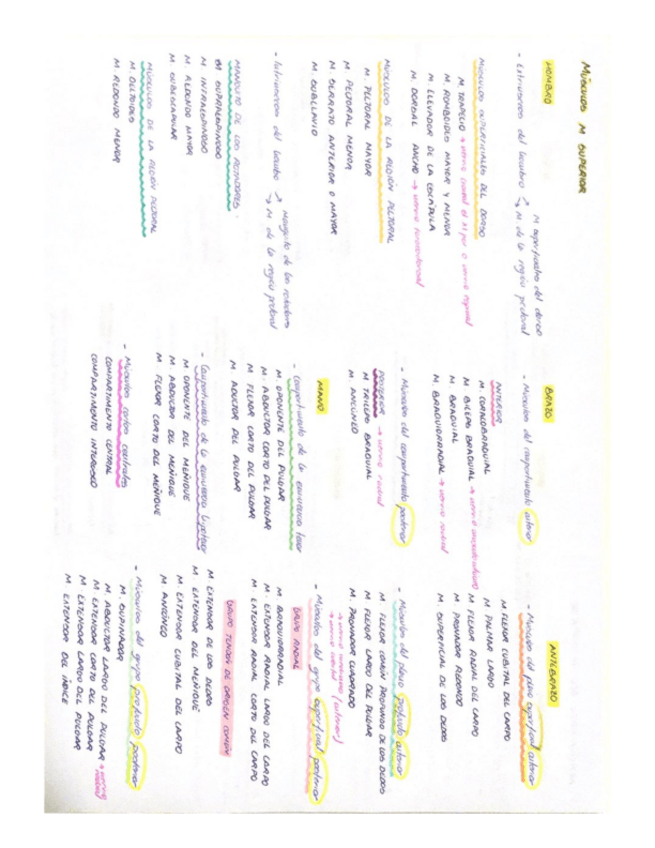 MÚSCULOS M SUPERIOR
HOMBRO
- Extrínsecos del hombro
M superficiales del dorso
M de la región pectoral
MÚSCULOS SUPERFICIALES DEL DORSO
M TRAPECIO → nervio craneal
M ROMBOIDES MAYOR Y MENOR
M ELEVADOR DE LA ESCÁPULA
M DORSAL ANCHO → nervio toracodorsal
MÚSCULOS DE LA REGIÓN PECTORAL
M. PECTORAL MAYOR
M PECTORAL MENOR
M SERRATO ANTERIOR O MAYOR
M. SUBCLAVIO
- Intrínsecos del hombro
Manguito de los rotadores
M de la región pectoral
MANGUITO DE LOS ROTADORES
M SUPRAESPINOSO
M INFRAESPINOSO
M. REDONDO MAYOR
M. SUBESCAPULAR
MÚSCULOS DE LA REGIÓN PECTORAL
M DELTOIDES
M. REDONDO MENOR
BRAZO
- Músculos del compartimento anterior
ANTERIOR
M CORACOBRAQUIAL
M BÍCEPS BRAQUIAL → nervio musculocutáneo
M BRAQUIAL
M. BRAQUIORRADIAL → nervio radial
- Músculos del compartimento posterior
POSTERIOR → nervio radial
M TRÍCEPS BRAQUIAL
M. ANCÓNEO
MANO
- Compartimento de la eminencia tenar
M OPONENTE DEL PULGAR
M. ABDUCTOR CORTO DEL PULGAR
M FLEXOR CORTO DEL PULGAR
M ADUCTOR DEL PULGAR
- Compartimento de la eminencia hipotenar
M OPONENTE DEL MEÑIQUE
M. ABDUCTOR DEL MEÑIQUE
M FLEXOR CORTO DEL MEÑIQUE
- Músculos cortos centrales
COMPARTIMENTO CENTRAL
COMPARTIMENTO INTERÓSEO
ANTEBRAZO
- Músculos del plano superficial anterior
M. FLEXOR CUBITAL DEL CARPO
M PALMAR LARGO
M FLEXOR RADIAL DEL CARPO
M PRONADOR REDONDO
M. SUPERFICIAL DE LOS DEDOS
- Músculos del plano profundo anterior
M FLEXOR COMÚN PROFUNDO DE LOS DEDOS
M FLEXOR LARGO DEL PULGAR
M. PRONADOR CUADRADO
→ nervio mediano (anterior)
→ nervio cubital
- Músculos del grupo superficial posterior
GRUPO RADIAL
M BRAQUIORRADIAL
M. EXTENSOR RADIAL LARGO DEL CARPO
M EXTENSOR RADIAL CORTO DEL CARPO
GRUPO TENDÓN DE ORIGEN COMÚN
M EXTENSOR DE LOS DEDOS
M. EXTENSOR DEL MEÑIQUE
M EXTENSOR CUBITAL DEL CARPO
M ANCÓNEO
- Músculos del grupo profundo posterior
M. SUPINADOR
M. ABDUCTOR LARGO DEL PULGAR → nervio radial
M EXTENSOR CORTO DEL PULGAR
M EXTENSOR LARGO DEL PULGAR
M EXTENSOR DEL ÍNDICE